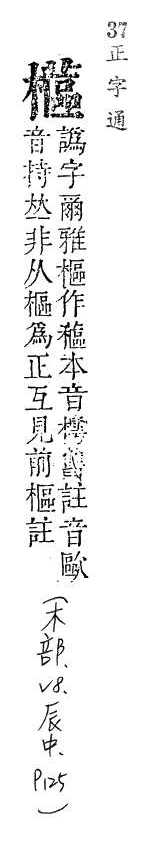 37正字通
櫙
譌字爾雅樞作蓲本音舊註音歐
音持丛非从樞為正互見前樞註
(木部. V8. 辰中. P125)